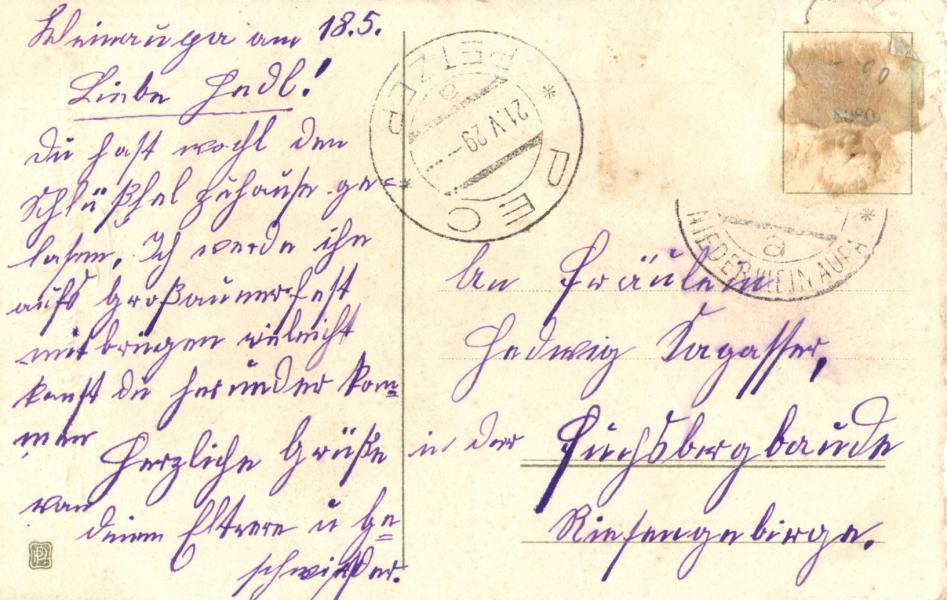 Weinaupa am 18.5.
Liebe Hedl!
du hast wohl den
Schlüßhel zuhause ge-
lasen. Ich werde ihn
aufs Großaunerfest
mitbringen vieleicht
kanst du herunder kom=
men
Herzliche Grüße
von
deinen Eltere u Ge=
schwister.
PETZER
a
21.V 29
PEC
NIEDERWEINAUPA
a
An Fräulein
Hedwig Sagasser,
in der Fuchsbergbaude
Riesengebirge.